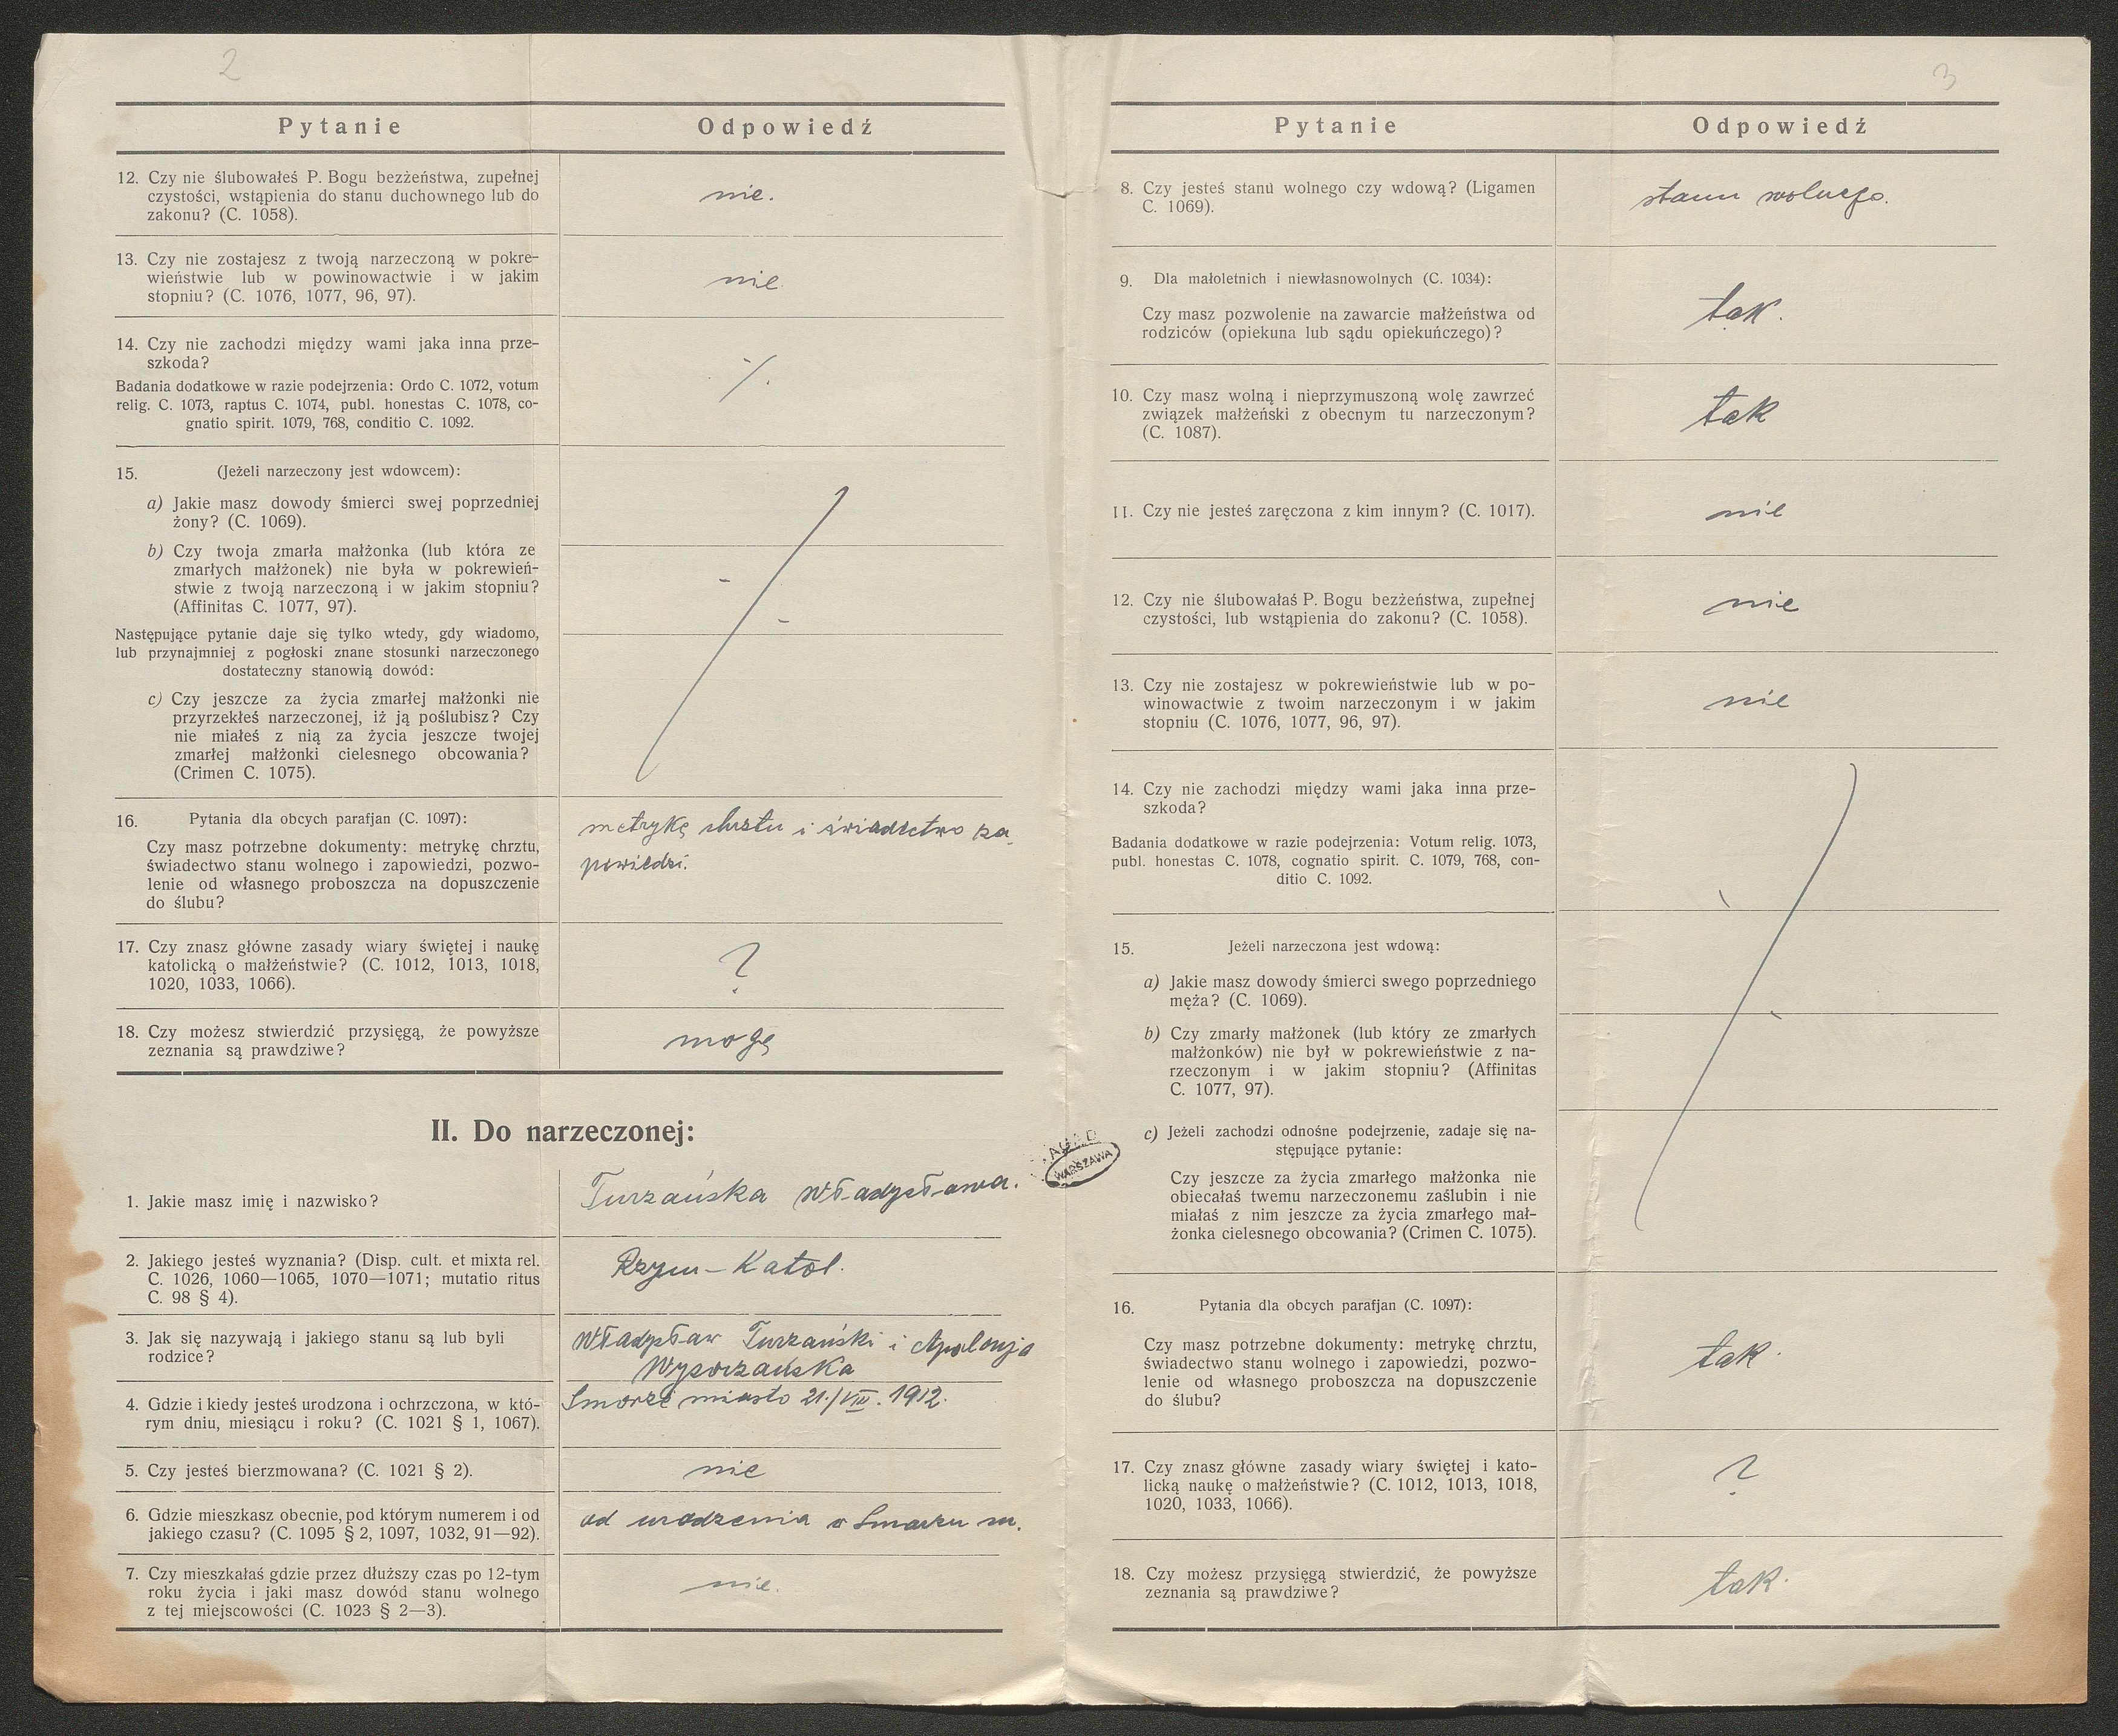 2
Pytanie
Odpowiedź
12. Czy nie ślubowałeś P. Bogu bezżeństwa, zupełnej
czystości, wstąpienia do stanu duchownego lub do
zakonu? (C. 1058).
nie.
13. Czy nie zostajesz z twoją narzeczoną w pokre-
wieństwie lub w powinowactwie i w jakim
stopniu? (C. 1076, 1077, 96, 97).
nie
14. Czy nie zachodzi między wami jaka inna prze-
szkoda?
Badania dodatkowe w razie podejrzenia: Ordo C. 1072, votum
relig. C. 1073, raptus C. 1074, publ. honestas C. 1078, co-
gnatio spirit. 1079, 768, conditio C. 1092.
15. (Jeżeli narzeczony jest wdowcem):
a) Jakie masz dowody śmierci swej poprzedniej
żony? (C. 1069).
b) Czy twoja zmarła małżonka (lub która ze
zmarłych małżonek) nie była w pokrewień-
stwie z twoją narzeczoną i w jakim stopniu?
(Affinitas C. 1077, 97).
Następujące pytanie daje się tylko wtedy, gdy wiadomo,
lub przynajmniej z pogłoski znane stosunki narzeczonego
dostateczny stanowią dowód:
c) Czy jeszcze za życia zmarłej małżonki nie
przyrzekłeś narzeczonej, iż ją poślubisz? Czy
nie miałeś z nią za życia jeszcze twojej
zmarłej małżonki cielesnego obcowania?
(Crimen C. 1075).
16. Pytania dla obcych parafjan (C. 1097):
Czy masz potrzebne dokumenty: metrykę chrztu,
świadectwo stanu wolnego i zapowiedzi, pozwo-
lenie od własnego proboszcza na dopuszczenie
do ślubu?
metrykę chrztu i świadectwo za-
powiedzi.
17. Czy znasz główne zasady wiary świętej i naukę
katolicką o małżeństwie? (C. 1012, 1013, 1018,
1020, 1033, 1066).
?
18. Czy możesz stwierdzić przysięgą, że powyższe
zeznania są prawdziwe?
mogę
II. Do narzeczonej:
1. Jakie masz imię i nazwisko?
Turzańska Władysława.
2. Jakiego jesteś wyznania? (Disp. cult. et mixta rel.
C. 1026, 1060—1065, 1070—1071; mutatio ritus
C. 98 § 4).
Rzym-Katol.
3. Jak się nazywają i jakiego stanu są lub byli
rodzice?
Władysław Turzański i Apolonja
Wysoczańska
4. Gdzie i kiedy jesteś urodzona i ochrzczona, w któ-
rym dniu, miesiącu i roku? (C. 1021 § 1, 1067).
Smorze miasto 21/VIII. 1912.
5. Czy jesteś bierzmowana? (C. 1021 § 2).
nie
6. Gdzie mieszkasz obecnie, pod którym numerem i od
jakiego czasu? (C. 1095 § 2, 1097, 1032, 91—92).
od urodzenia w Smorzu m.
7. Czy mieszkałaś gdzie przez dłuższy czas po 12-tym
roku życia i jaki masz dowód stanu wolnego
z tej miejscowości (C. 1023 § 2—3).
nie.
AGAD
WARSZAWA
3
Pytanie
Odpowiedź
8. Czy jesteś stanu wolnego czy wdową? (Ligamen
C. 1069).
stanu wolnego.
9. Dla małoletnich i niewłasnowolnych (C. 1034):
Czy masz pozwolenie na zawarcie małżeństwa od
rodziców (opiekuna lub sądu opiekuńczego)?
tak.
10. Czy masz wolną i nieprzymuszoną wolę zawrzeć
związek małżeński z obecnym tu narzeczonym?
(C. 1087).
tak
11. Czy nie jesteś zaręczona z kim innym? (C. 1017).
nie
12. Czy nie ślubowałaś P. Bogu bezżeństwa, zupełnej
czystości, lub wstąpienia do zakonu? (C. 1058).
nie
13. Czy nie zostajesz w pokrewieństwie lub w po-
winowactwie z twoim narzeczonym i w jakim
stopniu (C. 1076, 1077, 96, 97).
nie
14. Czy nie zachodzi między wami jaka inna prze-
szkoda?
Badania dodatkowe w razie podejrzenia: Votum relig. 1073,
publ. honestas C. 1078, cognatio spirit. C. 1079, 768, con-
ditio C. 1092.
15. Jeżeli narzeczona jest wdową:
a) Jakie masz dowody śmierci swego poprzedniego
męża? (C. 1069).
b) Czy zmarły małżonek (lub który ze zmarłych
małżonków) nie był w pokrewieństwie z na-
rzeczonym i w jakim stopniu? (Affinitas
C. 1077, 97).
c) Jeżeli zachodzi odnośne podejrzenie, zadaje się na-
stępujące pytanie:
Czy jeszcze za życia zmarłego małżonka nie
obiecałaś twemu narzeczonemu zaślubin i nie
miałaś z nim jeszcze za życia zmarłego mał-
żonka cielesnego obcowania? (Crimen C. 1075).
16. Pytania dla obcych parafjan (C. 1097):
Czy masz potrzebne dokumenty: metrykę chrztu,
świadectwo stanu wolnego i zapowiedzi, pozwo-
lenie od własnego proboszcza na dopuszczenie
do ślubu?
tak.
17. Czy znasz główne zasady wiary świętej i kato-
licką naukę o małżeństwie? (C. 1012, 1013, 1018,
1020, 1033, 1066).
?
18. Czy możesz przysięgą stwierdzić, że powyższe
zeznania są prawdziwe?
tak.